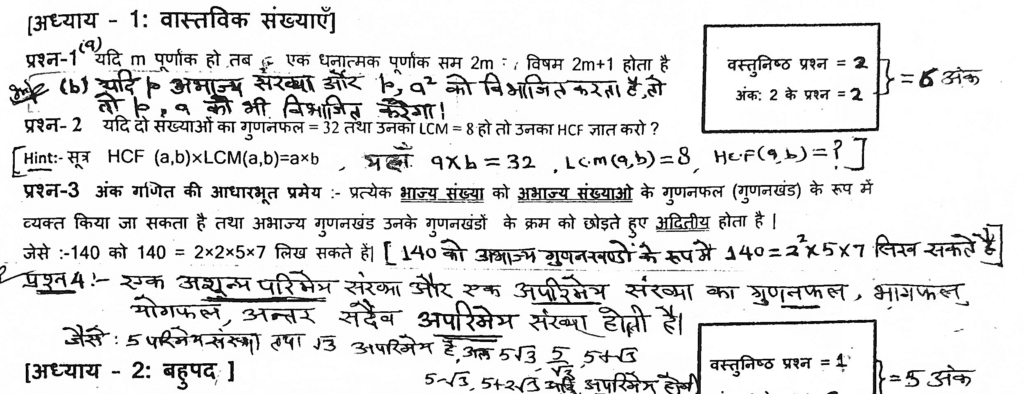 [अध्याय - 1: वास्तविक संख्याएँ]
प्रश्न-1 (a) यदि m पूर्णांक हो तब एक धनात्मक पूर्णांक सम 2m : , विषम 2m+1 होता है
वस्तुनिष्ठ प्रश्न = 2
अंक: 2 के प्रश्न = 2
= 6 अंक
(b) यदि p अभाज्य संख्या और p, a² को विभाजित करता है, तो
तो p, a को भी विभाजित करेगा!
प्रश्न- 2 यदि दो संख्याओं का गुणनफल = 32 तथा उनका LCM = 8 हो तो उनका HCF ज्ञात करो ?
[Hint:- सूत्र HCF (a,b)×LCM(a,b)=a×b , यहाँ a×b = 32 , L.C.M(a,b) = 8, H.C.F(a,b) = ?]
प्रश्न-3 अंक गणित की आधारभूत प्रमेय :- प्रत्येक भाज्य संख्या को अभाज्य संख्याओ के गुणनफल (गुणनखंड) के रूप में
व्यक्त किया जा सकता है तथा अभाज्य गुणनखंड उनके गुणनखंडों के क्रम को छोड़ते हुए अदितीय होता है |
जेसे :-140 को 140 = 2×2×5×7 लिख सकते हें| [140 को अभाज्य गुणनखण्डों के रूप में 140 = 2²×5×7 लिख सकते हैं]
प्रश्न 4:- एक अशून्य परिमेय संख्या और एक अपरिमेय संख्या का गुणनफल, भागफल,
योगफल, अन्तर सदैव अपरिमेय संख्या होती है|
जैसे : 5 परिमेय संख्या तथा √3 अपरिमेय है, अतः 5√3, 5/√3, 5+√3
5-√3, 5+2√3 आदि अपरिमेय होंगी
[अध्याय - 2: बहुपद ]
वस्तुनिष्ठ प्रश्न = 1
= 5 अंक